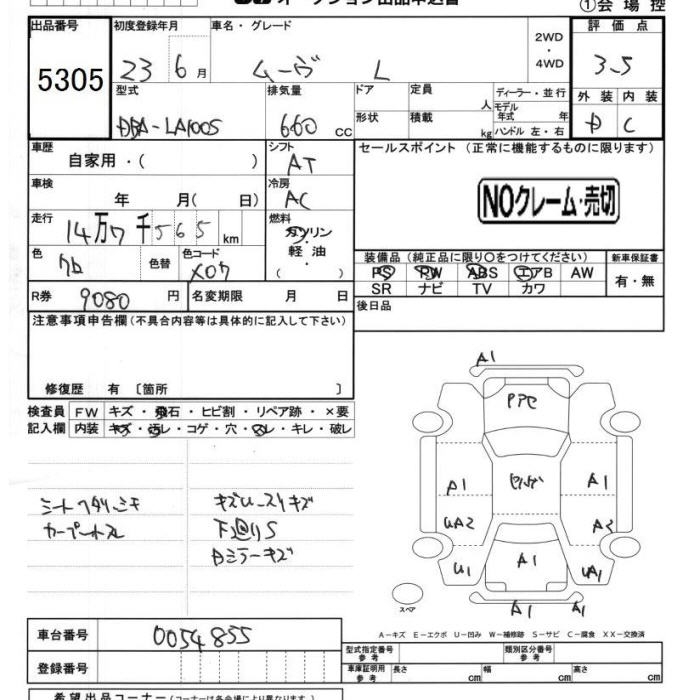 ①会場控
出品番号 初度登録年月 車名・グレード 2WD・4WD 評価点
5305 23 6月 ムーヴ L 3.5
型式 排気量 ドア 定員 人 ディーラー・並行 外装 内装
DBA-LA100S 660 cc 形状 積載 kg モデル年式 年 ハンドル 左・右 D C
車歴 自家用・( ) シフト AT セールスポイント (正常に機能するものに限ります)
車検 年 月( 日) 冷房 AC
NOクレーム・売切
走行 14万7千565km 燃料 ガソリン・軽油・( )
色 クロ 色替 色コード X07
装備品 (純正品に限り○をつけてください) 新車保証書
PS PW ABS エアB AW 有・無
SR ナビ TV カワ
R券 9080円 名変期限 月 日 後日品
注意事項申告欄 (不具合内容等は具体的に記入して下さい)
修復歴 有 〔箇所 〕
検査員記入欄 FW キズ・飛石・ヒビ割・リペア跡・×要
内装 キズ・汚レ・コゲ・穴・スレ・キレ・破レ
シートヘタリ、シミ
下廻りS
A1
A1 A1
UA2 A2
A1
U1 UA1
スペア A1 A1
A－キズ E－エクボ U－凹み W－補修跡 S－サビ C－腐食 XX－交換済
車台番号 0054855
登録番号
型式指定番号 参考 類別区分番号 参考
車庫証明用 参考 長さ cm 幅 cm 高さ cm
希望出品コーナー (コーナーは各会場により異なります。)